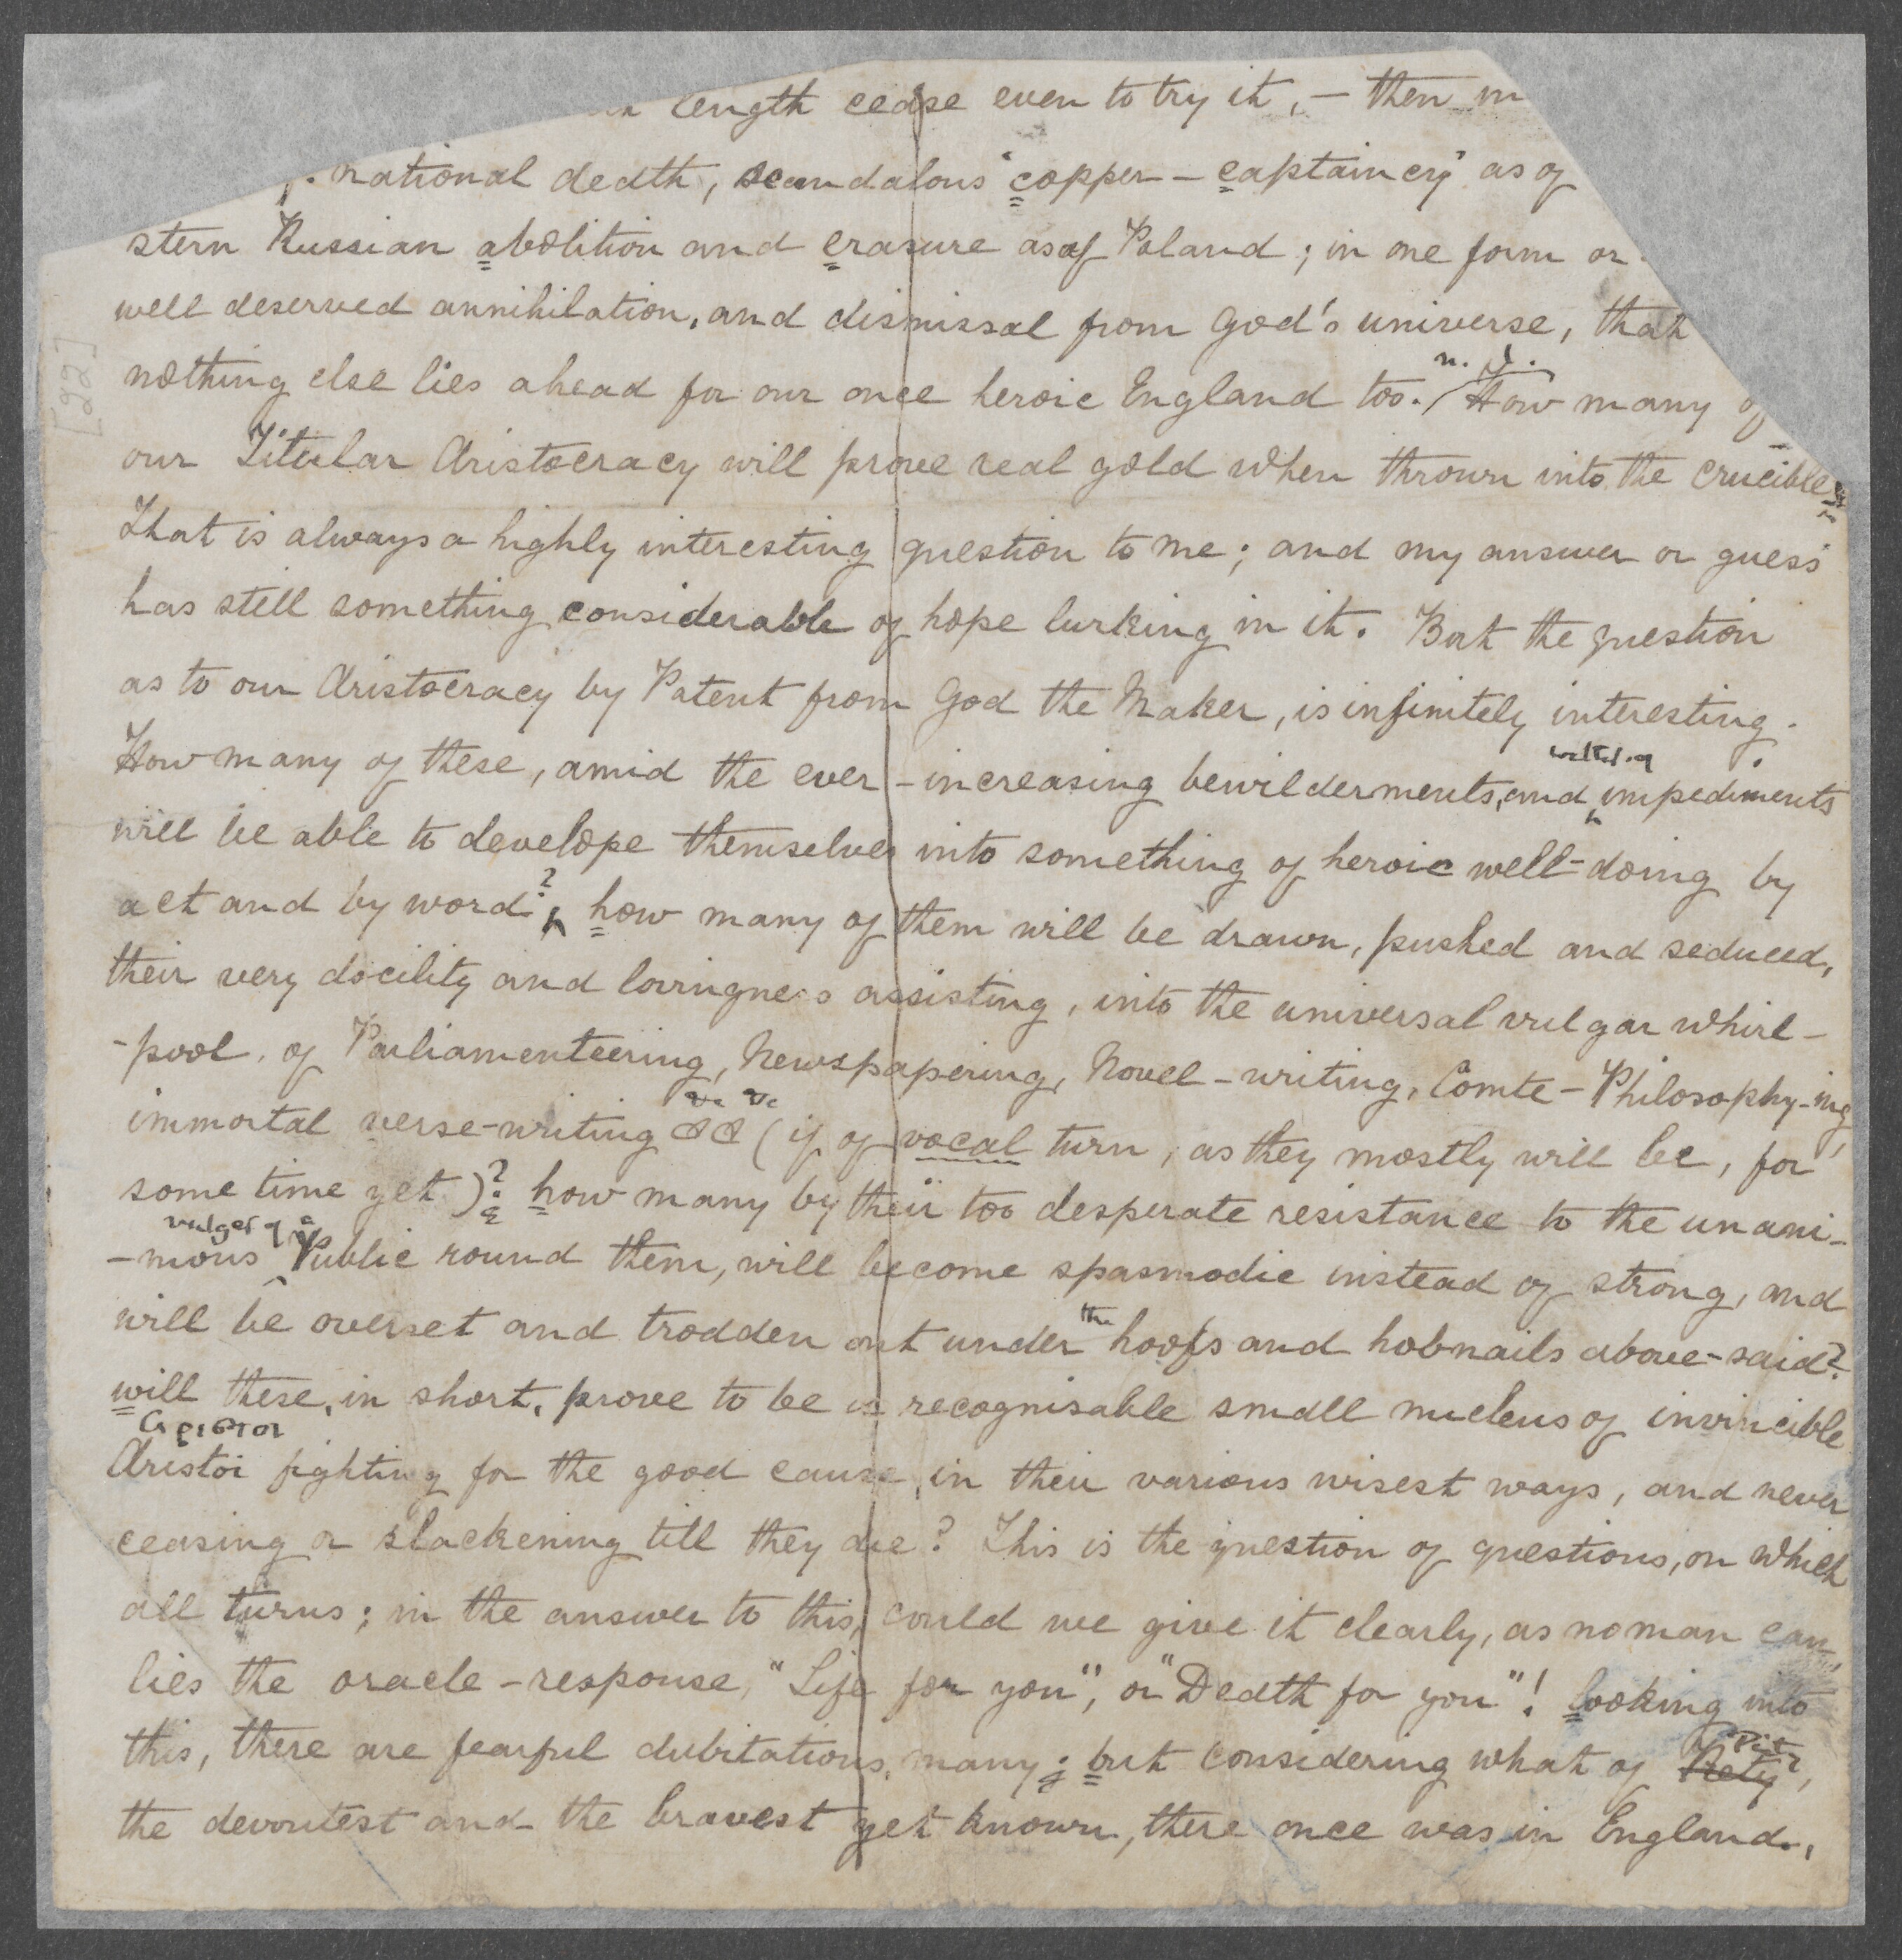 length cease even to try it, — then
national death, scandalous 'copper-captaincy' as of
stern Russian abolition and erasure as of Poland; in one form or
well deserved annihilation, and dismissal from God's universe, that
nothing else lies ahead for our once heroic England too. / n. p. How many of
our Titular Aristocracy will prove real gold when thrown into the crucible
That is always a highly interesting question to me; and my answer or guess
has still something considerable of hope lurking in it. But the question
as to our Aristocracy by Patent from God the Maker, is infinitely interesting.
How many of these, amid the ever-increasing bewilderments, and impediments
will be able to develope themselves into something of heroic well-doing by
act and by word? how many of them will be drawn, pushed and seduced,
their very docility and lovingness assisting, into the universal vulgar whirl-
-pool, of Parliamenteering, Newspapering, Novel-writing, Comte-Philosophy-ing,
immortal verse-writing &c &c (if of vocal turn, as they mostly will be, for
some time yet)? how many by their too desperate resistance to the unani-
-mous vulgar of a Public round them, will become spasmodic instead of strong, and
will be overset and trodden out under the hoofs and hobnails above-said?
will these, in short, prove to be a recognisable small nucleus of invincible
Aristoi fighting for the good cause, in their various wisest ways, and never
ceasing or slackening till they die? This is the question of questions, on which
all turns; in the answer to this, could we give it clearly, as no man can,
lies the oracle-response, "Life for you", or "Death for you"! Looking into
this, there are fearful dubitations many; but considering what of Piety,
the devoutest and the bravest yet known, there once was in England,